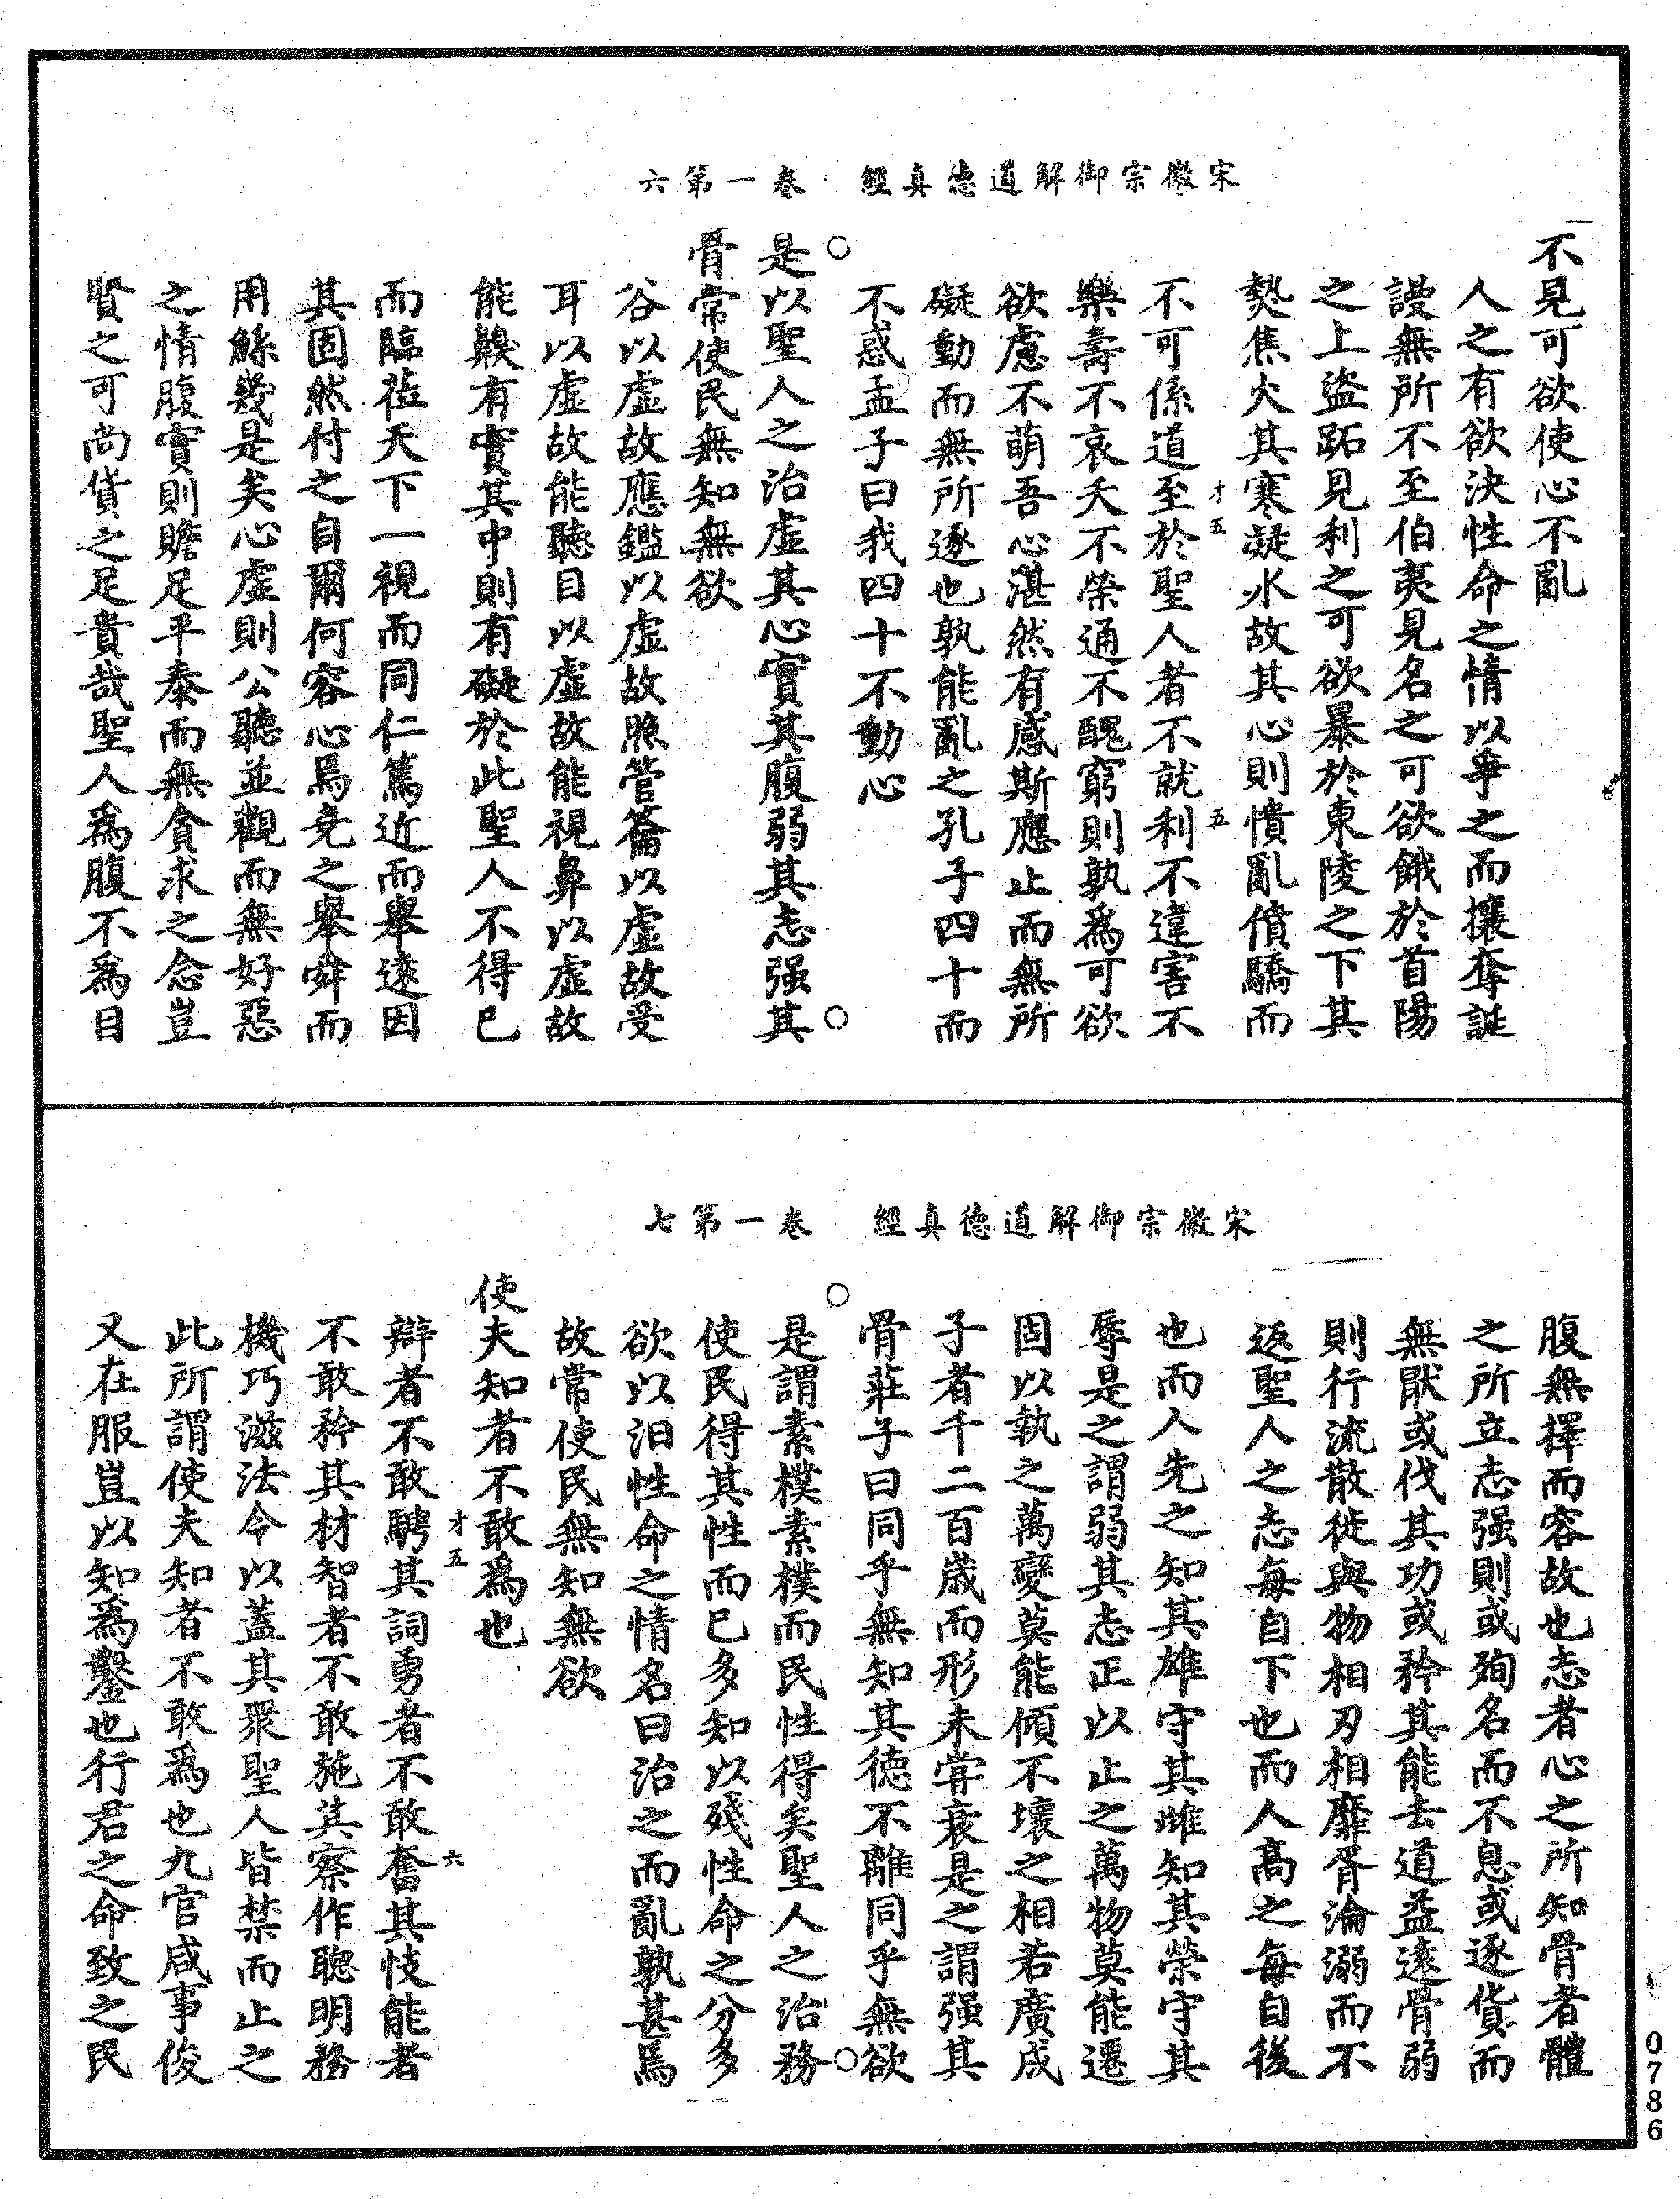 宋徽宗御解道德真經　卷一第六
不見可欲使心不亂
人之有欲決性命之情以爭之而攘奪誕
謾無所不至伯夷見名之可欲餓於首陽
之上盜跖見利之可欲暴於東陵之下其
熱焦火其寒凝氷故其心則憒亂僨驕而
不可係道至於聖人者不就利不違害不
才五
五
樂壽不哀夭不榮通不醜窮則孰爲可欲
欲慮不萌吾心湛然有感斯應止而無所
礙動而無所逐也孰能亂之孔子四十而
不惑孟子曰我四十不動心
○ ○
是以聖人之治虛其心實其腹弱其志强其
骨常使民無知無欲
谷以虛故應鑑以虛故照管籥以虛故受
耳以虛故能聽目以虛故能視鼻以虛故
能齅有實其中則有礙於此聖人不得已
而臨莅天下一視而同仁篤近而舉遠因
其固然付之自爾何容心焉堯之舉舜而
用鯀幾是矣心虛則公聽並觀而無好惡
之情腹實則贍足平泰而無貪求之念豈
賢之可尚貨之足貴哉聖人爲腹不爲目
宋徽宗御解道德真經　卷一第七
腹無擇而容故也志者心之所知骨者體
之所立志强則或殉名而不息或逐貨而
無厭或伐其功或矜其能去道益遠骨弱
則行流散徙與物相刃相靡胥淪溺而不
返聖人之志每自下也而人高之每自後
也而人先之知其雄守其雌知其榮守其
辱是之謂弱其志正以止之萬物莫能遷
固以執之萬變莫能傾不壞之相若廣成
子者千二百歲而形未嘗衰是之謂强其
骨莊子曰同乎無知其德不離同乎無欲
○ ○
是謂素樸素樸而民性得矣聖人之治務
使民得其性而已多知以殘性命之分多
欲以汩性命之情名曰治之而亂孰甚焉
故常使民無知無欲
使夫知者不敢爲也
才五
六
辯者不敢騁其詞勇者不敢奮其忮能者
不敢矜其材智者不敢施其察作聰明務
機巧滋法令以蓋其衆聖人皆禁而止之
此所謂使夫知者不敢爲也九官咸事俊
又在服豈以知爲鑿也行君之命致之民
0786